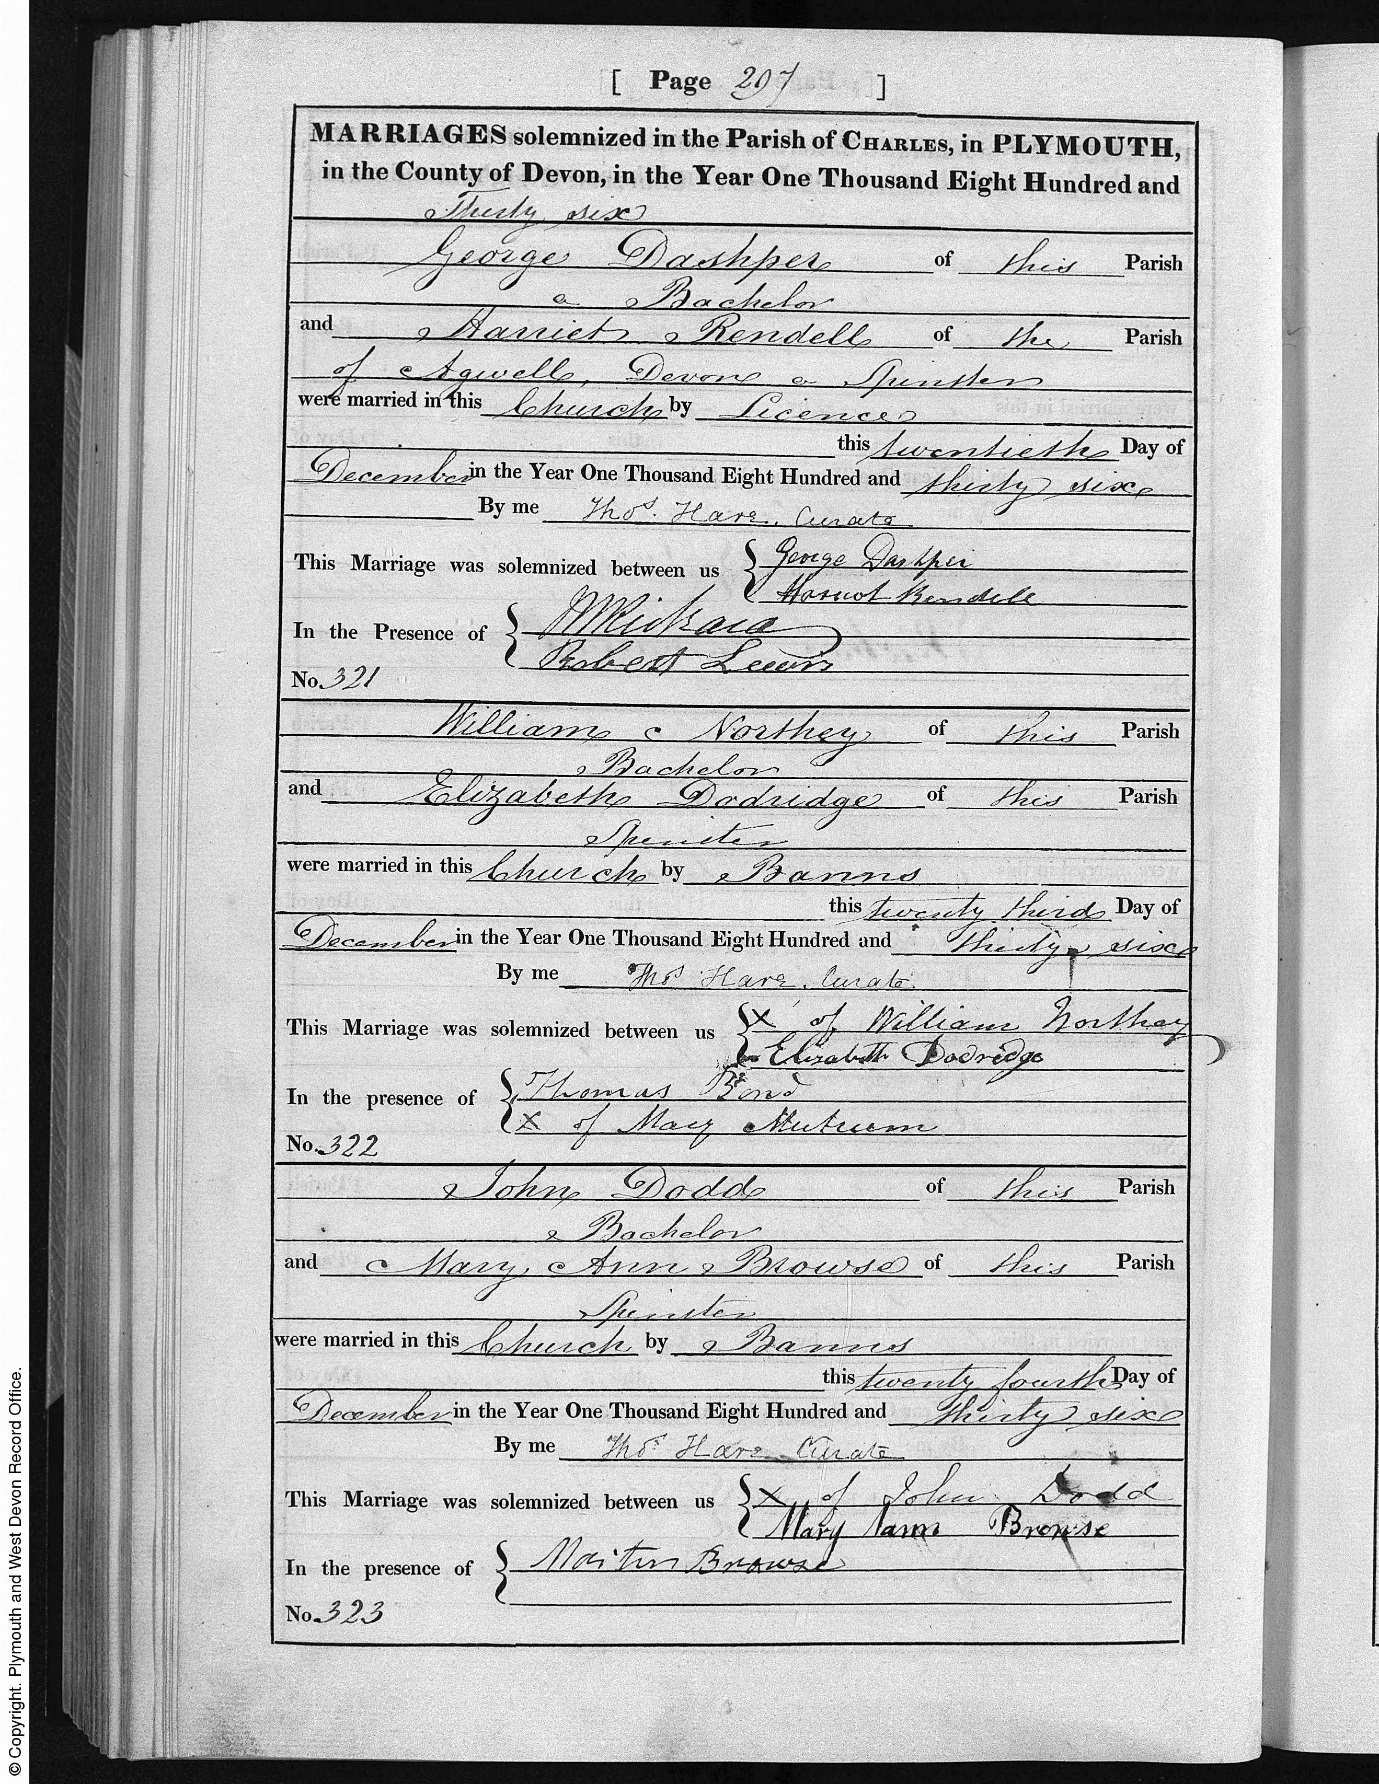 [ Page 207 ]
MARRIAGES solemnized in the Parish of CHARLES, in PLYMOUTH,
in the County of Devon, in the Year One Thousand Eight Hundred and
Thirty six
George Dashper of this Parish
a Bachelor
and Harriet Rendell of the Parish
of Ogwell, Devon a Spinster
were married in this Church by Licence
this twentieth Day of
December in the Year One Thousand Eight Hundred and thirty six
By me Thos. Hare. Curate
This Marriage was solemnized between us George Dashper
Harriot Rendell
In the Presence of
Robert Lewis
No. 321
William Northey of this Parish
Bachelor
and Elizabeth Dodridge of this Parish
Spinster
were married in this Church by Banns
this twenty third Day of
December in the Year One Thousand Eight Hundred and thirty six
By me Thos Hare. Curate
This Marriage was solemnized between us X of William Northey
Elizabeth Dodredge
In the presence of Thomas Bond
X of Mary
No. 322
John Dodd of this Parish
Bachelor
and Mary Ann Browse of this Parish
Spinster
were married in this Church by Banns
this twenty fourth Day of
December in the Year One Thousand Eight Hundred and thirty six
By me Thos Hare Curate
This Marriage was solemnized between us X of John Dodd
Mary Nann Browse
In the presence of Martin Browse
No. 323
© Copyright. Plymouth and West Devon Record Office.